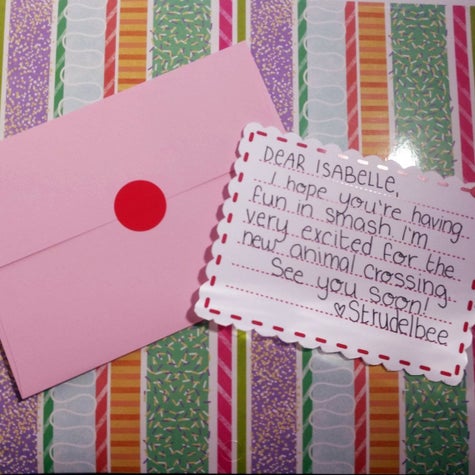 DEAR ISABELLE,
I hope you're having
fun in smash I'm
very excited for the
new animal crossing
See you soon!
♡Strudelbee